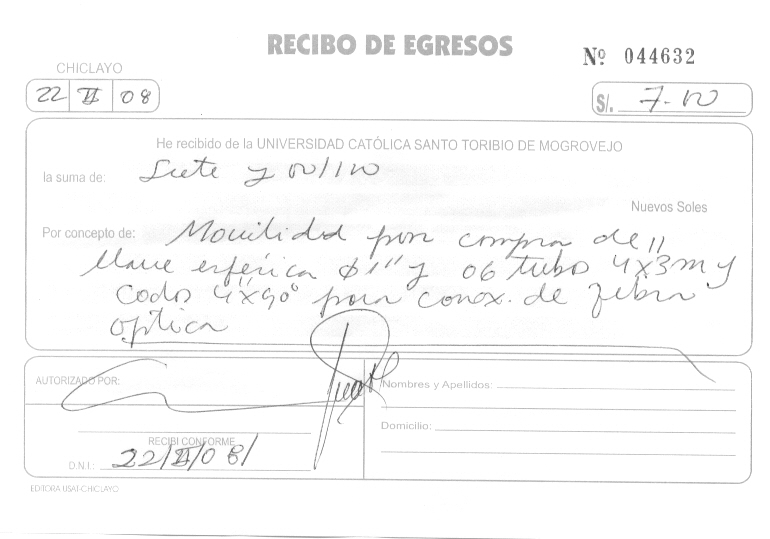 RECIBO DE EGRESOS
Nº 044632
CHICLAYO
22 II 08
S/. 7.00
He recibido de la UNIVERSIDAD CATÓLICA SANTO TORIBIO DE MOGROVEJO
la suma de: Siete y 00/100
Nuevos Soles
Por concepto de: Movilidad por compra de
llave esférica ø 1" y 06 tubos 4x3m y
codos 4"x90° para conex. de fibra
optica
AUTORIZADO POR:
Nombres y Apellidos:
Domicilio:
RECIBI CONFORME
D.N.I.: 22/II/08/
EDITORA USAT-CHICLAYO